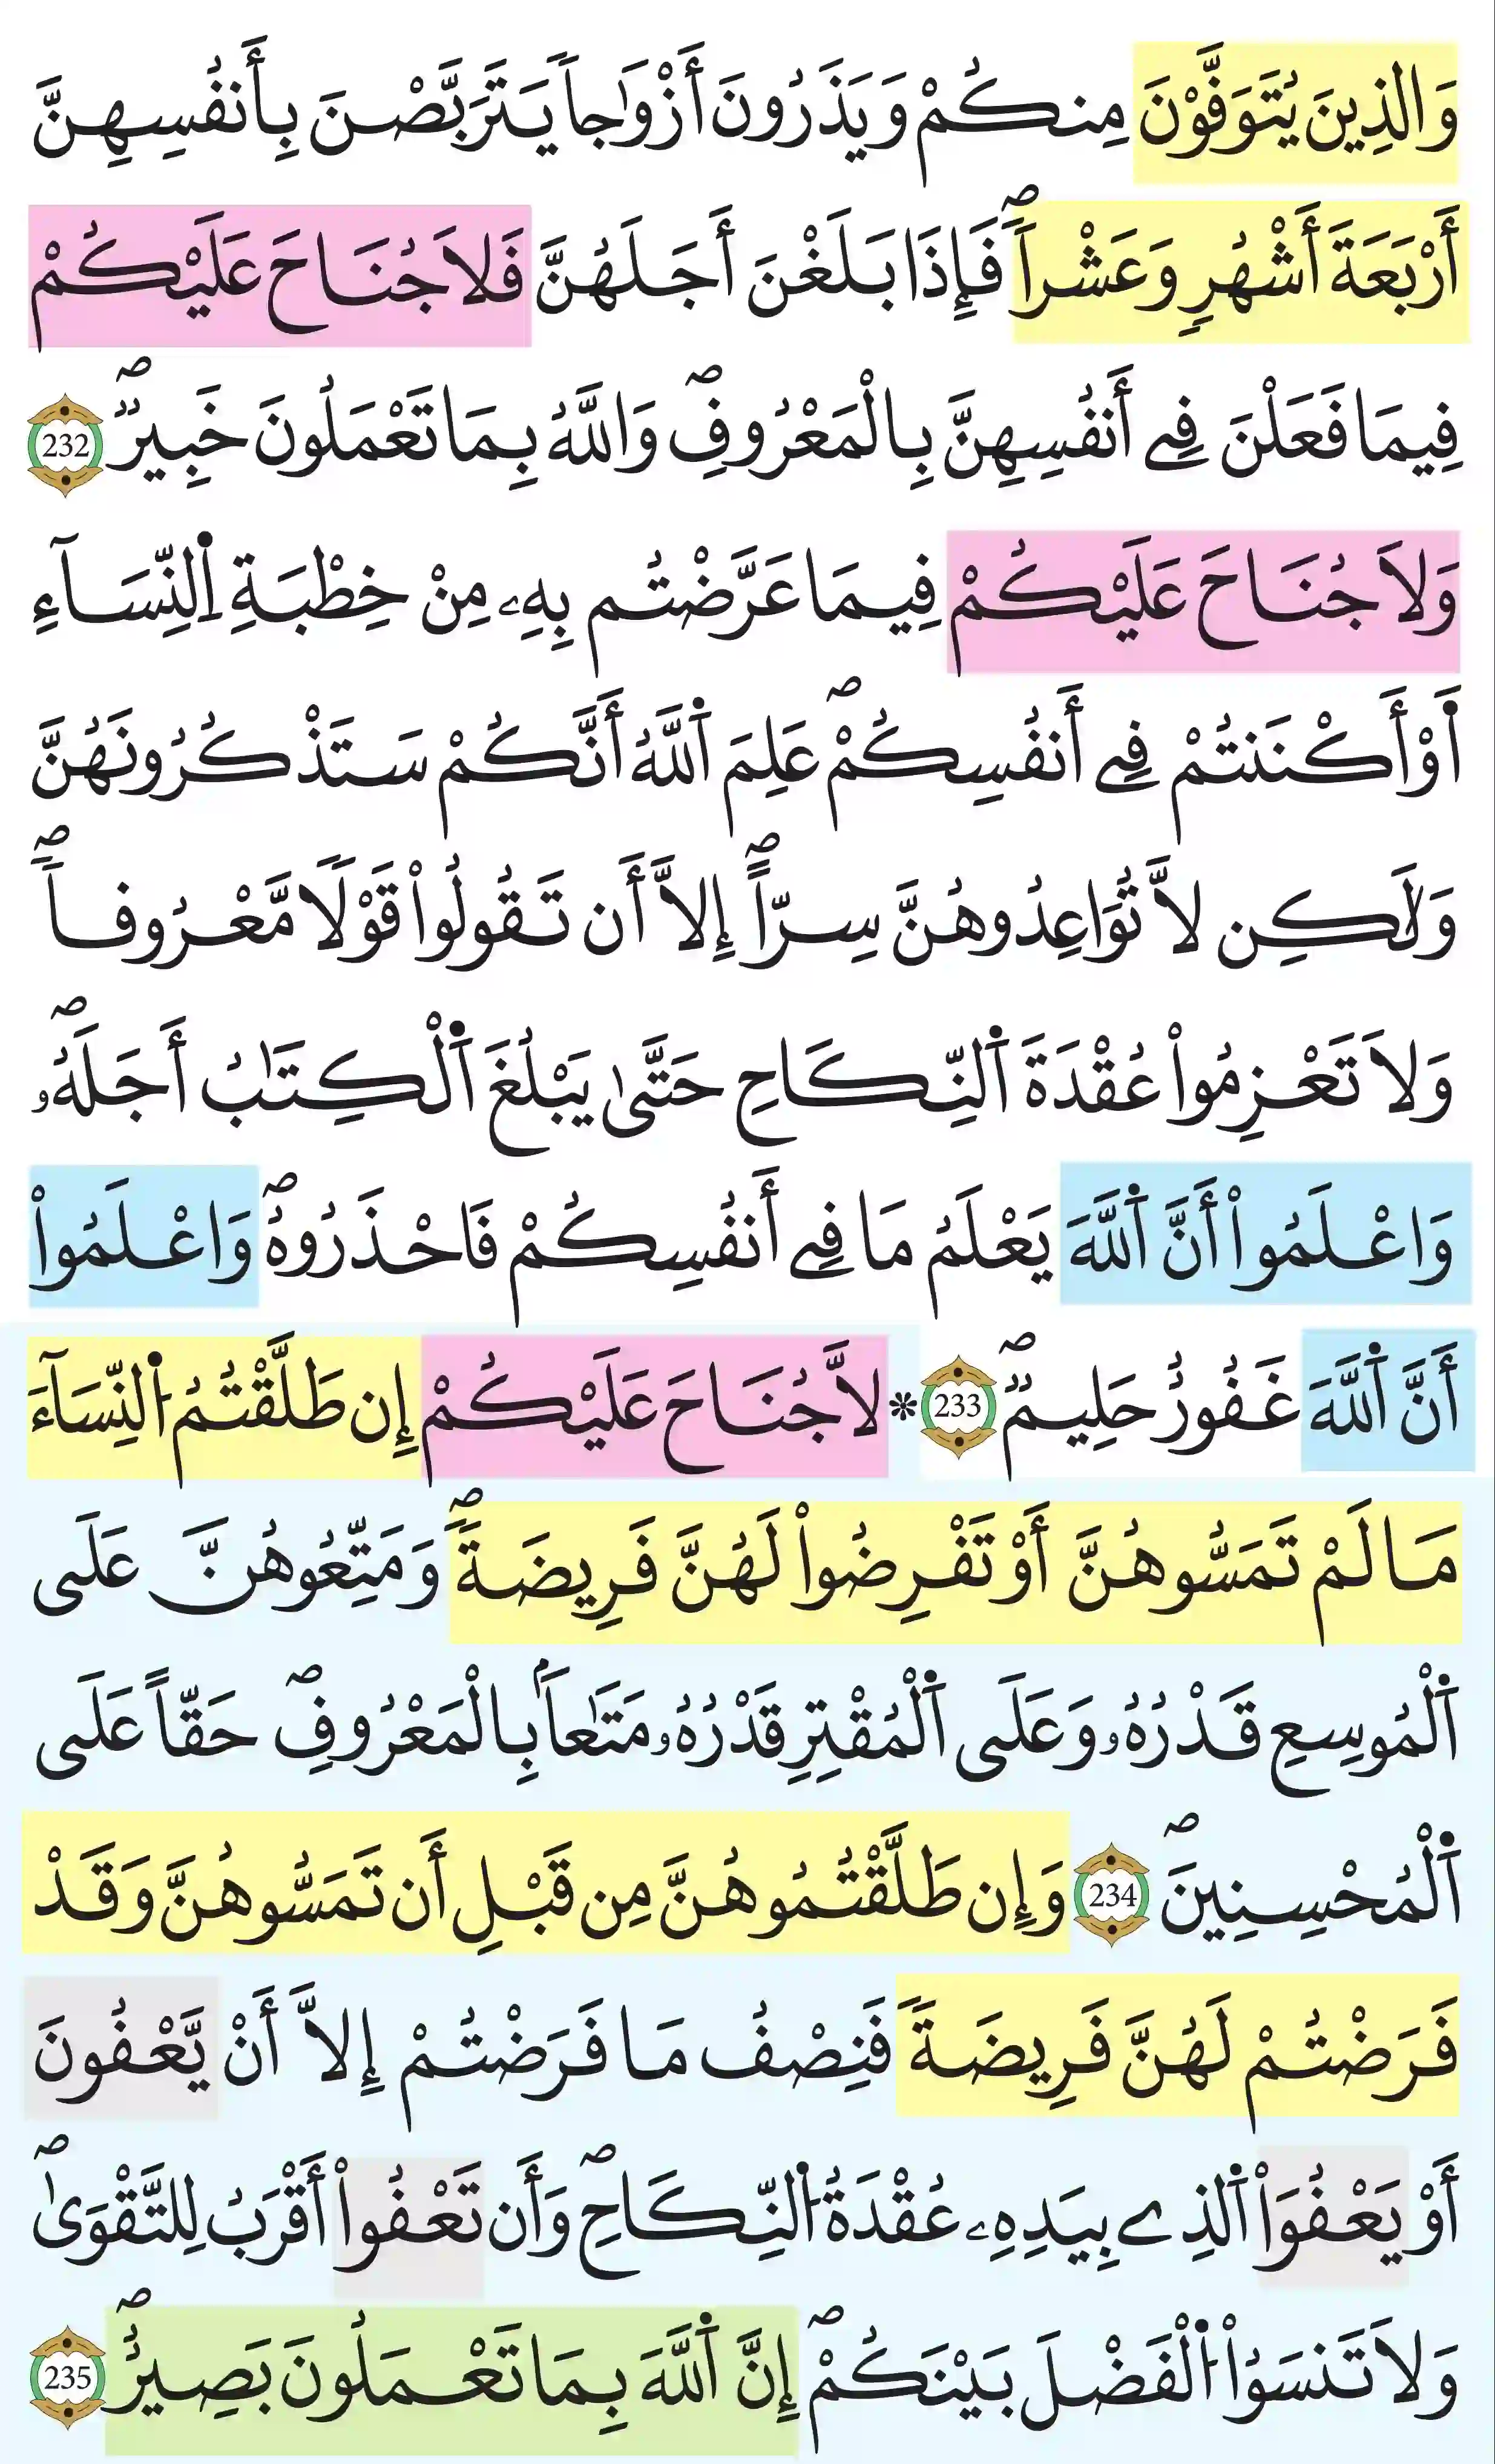 وَالذِينَ يُتَوَفَّوْنَ مِنكُمْ وَيَذَرُونَ أَزْوَٰجاً يَتَرَبَّصْنَ بِأَنفُسِهِنَّ
أَرْبَعَةَ أَشْهُرٍ وَعَشْراًۖ فَإِذَا بَلَغْنَ أَجَلَهُنَّ فَلَا جُنَاحَ عَلَيْكُمْ
فِيمَا فَعَلْنَ فِے أَنفُسِهِنَّ بِالْمَعْرُوفِۖ وَاللَّهُ بِمَا تَعْمَلُونَ خَبِيرٞۖ 232
وَلَا جُنَاحَ عَلَيْكُمْ فِيمَا عَرَّضْتُم بِهِۦ مِنْ خِطْبَةِ اِ۬لنِّسَآءِ
أَوْ أَكْنَنتُمْ فِے أَنفُسِكُمْۖ عَلِمَ اَ۬للَّهُ أَنَّكُمْ سَتَذْكُرُونَهُنَّ
وَلَٰكِن لَّا تُوَاعِدُوهُنَّ سِرّاًۖ إِلَّا أَن تَقُولُواْ قَوْلًا مَّعْرُوفاًۖ
وَلَا تَعْزِمُواْ عُقْدَةَ اَ۬لنِّكَاحِ حَتَّىٰ يَبْلُغَ اَ۬لْكِتَٰبُ أَجَلَهُۥۖ
وَاعْلَمُواْ أَنَّ اَ۬للَّهَ يَعْلَمُ مَا فِے أَنفُسِكُمْ فَاحْذَرُوهُۖ وَاعْلَمُواْ
أَنَّ اَ۬للَّهَ غَفُورٌ حَلِيمٞۖ 233 * لَّا جُنَاحَ عَلَيْكُمْ إِن طَلَّقْتُمُ اُ۬لنِّسَآءَ
مَا لَمْ تَمَسُّوهُنَّ أَوْ تَفْرِضُواْ لَهُنَّ فَرِيضَةًۖ وَمَتِّعُوهُنَّ عَلَى
اَ۬لْمُوسِعِ قَدْرُهُۥ وَعَلَى اَ۬لْمُقْتِرِ قَدْرُهُۥ مَتَٰعاَۢ بِالْمَعْرُوفِۖ حَقّاً عَلَى
اَ۬لْمُحْسِنِينَۖ 234 وَإِن طَلَّقْتُمُوهُنَّ مِن قَبْلِ أَن تَمَسُّوهُنَّ وَقَدْ
فَرَضْتُمْ لَهُنَّ فَرِيضَةً فَنِصْفُ مَا فَرَضْتُمْ إِلَّا أَنْ يَّعْفُونَ
أَوْ يَعْفُوَاْ اَ۬لذِے بِيَدِهِۦ عُقْدَةُ اُ۬لنِّكَاحِۖ وَأَن تَعْفُواْ أَقْرَبُ لِلتَّقْوَىٰۖ
وَلَا تَنسَوُاْ اُ۬لْفَضْلَ بَيْنَكُمْۖ إِنَّ اَ۬للَّهَ بِمَا تَعْمَلُونَ بَصِيرٌۖ 235